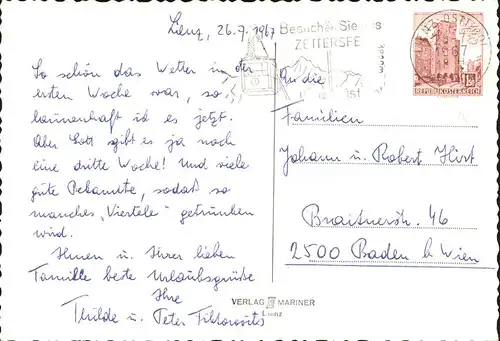 Lienz, 26.7.1967
So schön das Wetter in der
ersten Woche war, so
launenhaft ist es jetzt.
Aber Gott gibt es ja noch
eine dritte Woche! Und viele
gute Bekannte, sodaß so
manches „Viertele“ getrunken
wird.
Ihnen u. Ihrer lieben
Familie beste Urlaubsgrüße
Ihre
Thilde u. Peter
Besuchen Sie das
ZETTERSFE
REPUBLIK ÖSTERREICH
An die
Familien
Johann u. Robert Hirt
Braitnerstr. 46
2500 Baden b Wien
VERLAG MARINER
Lienz